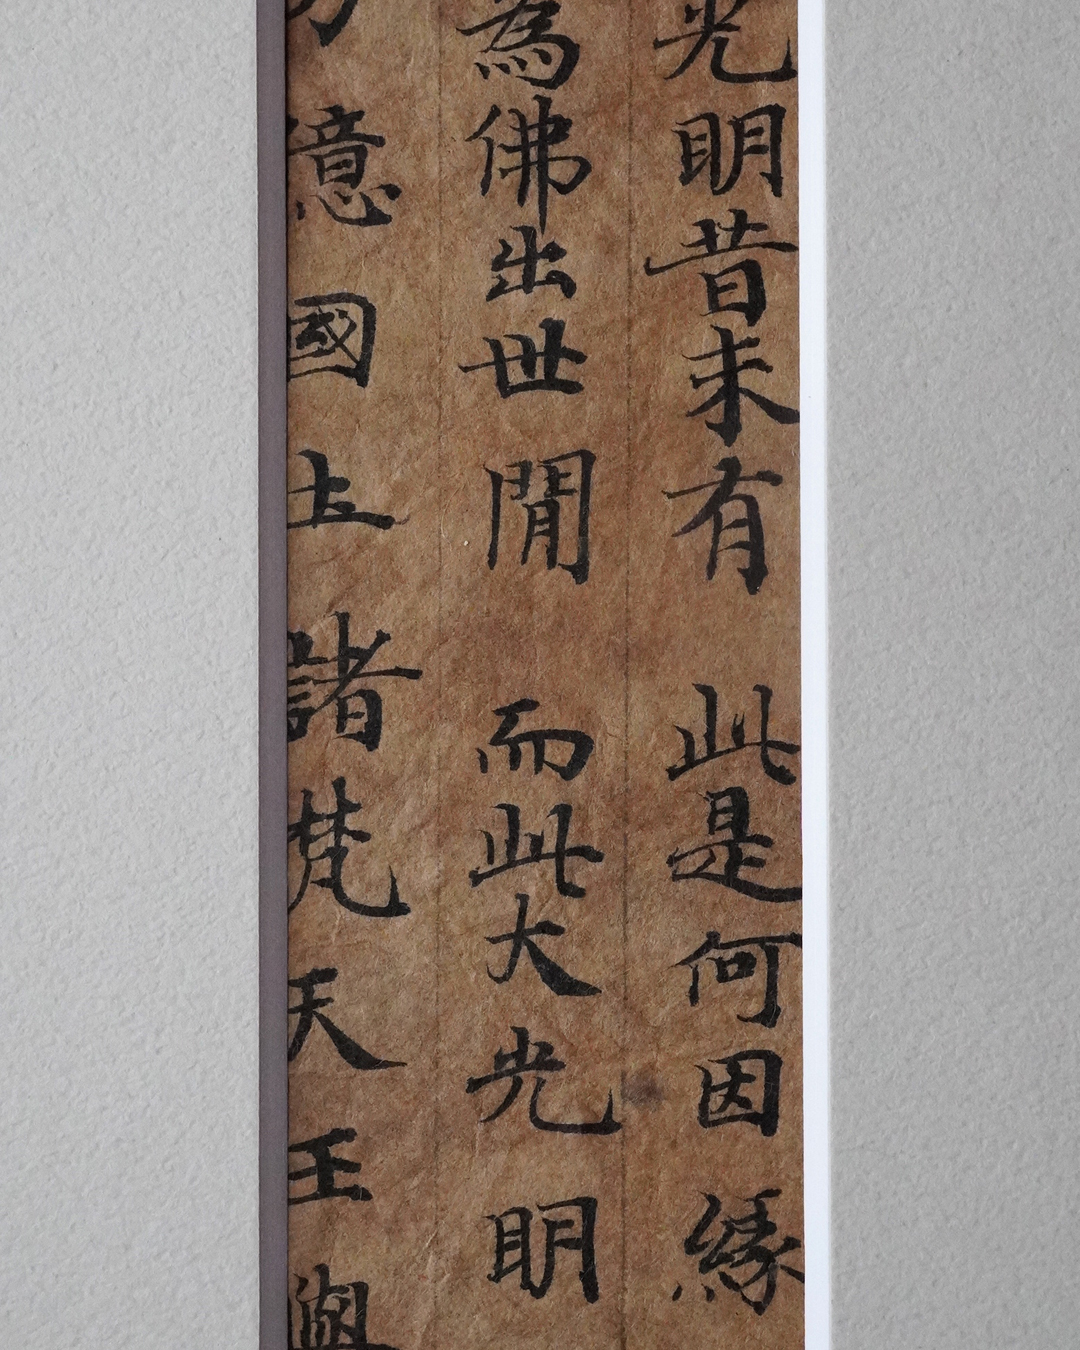 光明昔未有 此是何因緣
為佛出世閒 而此大光明
億國土諸梵天王